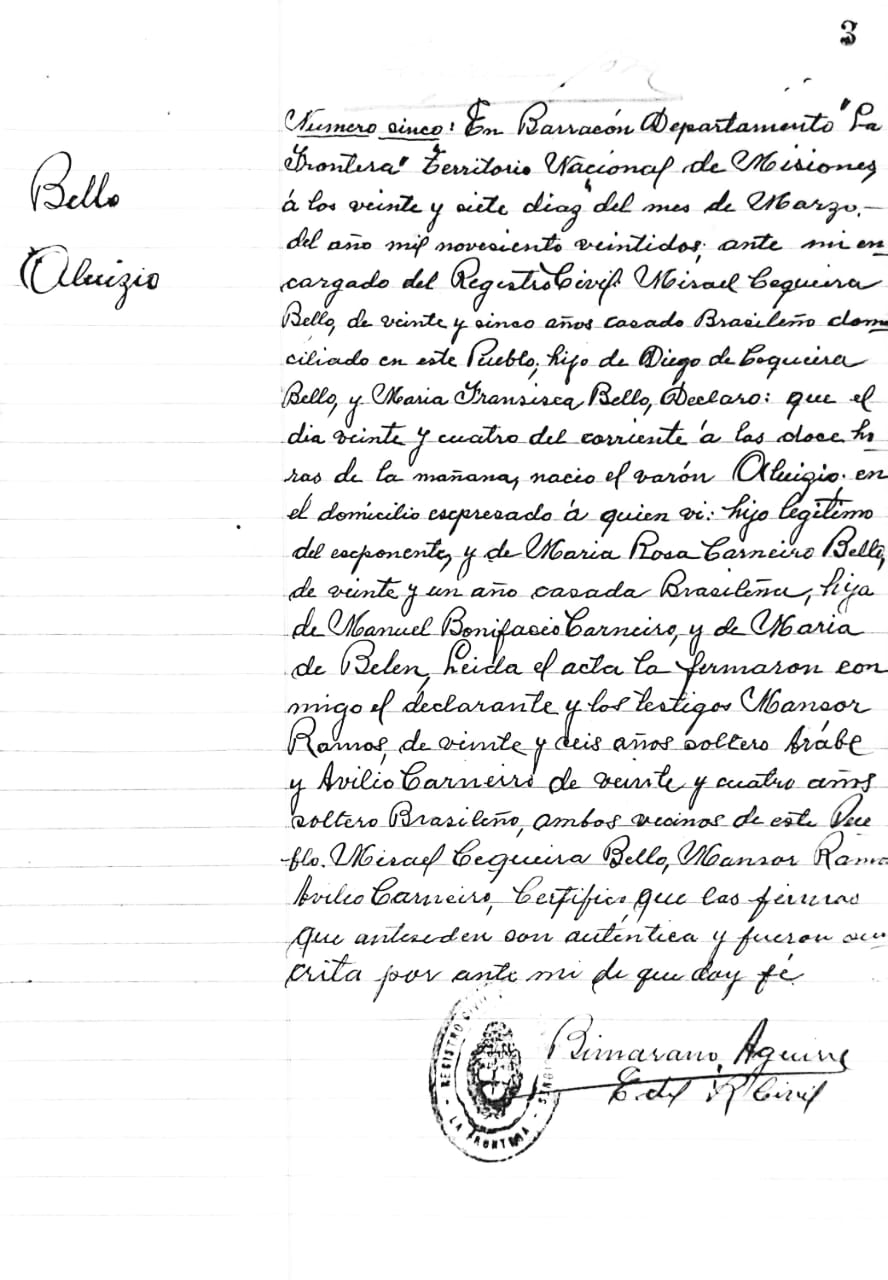 3
Bello
Aluizio
Numero sinco: En Barracón Departamento "La
Frontera" Territorio Nacional de Misiones
á los veinte y siete diaz del mes de Marzo.—
del año mil novesiento veintidos, ante mi en
cargado del Registro Civil Misael Cequeira
Bello, de veinte y sinco años casado Brasileño domi
ciliado en este Pueblo, hijo de Diego de Cequeira
Bello, y Maria Fransisca Bello, Declaro: que el
dia veinte y cuatro del corriente á las doce ho
ras de la mañana, nacio el varón Aluizio. en
el domicilio escpresado á quien vi: hijo legitimo
del escponente, y de Maria Rosa Carneiro Bello,
de veinte y un año casada Brasileña, hija
de Manuel Bonifacio Carneiro, y de Maria
de Belen, Leida el acta la fermaron con
migo el declarante y los testigos Mansor
Ramos, de veinte y seis años soltero Arábe
y Avilio Carneiro de veinte y cuatro años
soltero Brasileño, ambos vecinos de este Pue
blo. Misael Cequeira Bello, Mansor Ramos
Avilio Carneiro, Certifico, que las firmas
que anteseden son auténtica y fueron sus
crita por ante mi de que doy fé
Aguirre
E del R Civil
REGISTRO CIVIL
LA FRONTERA